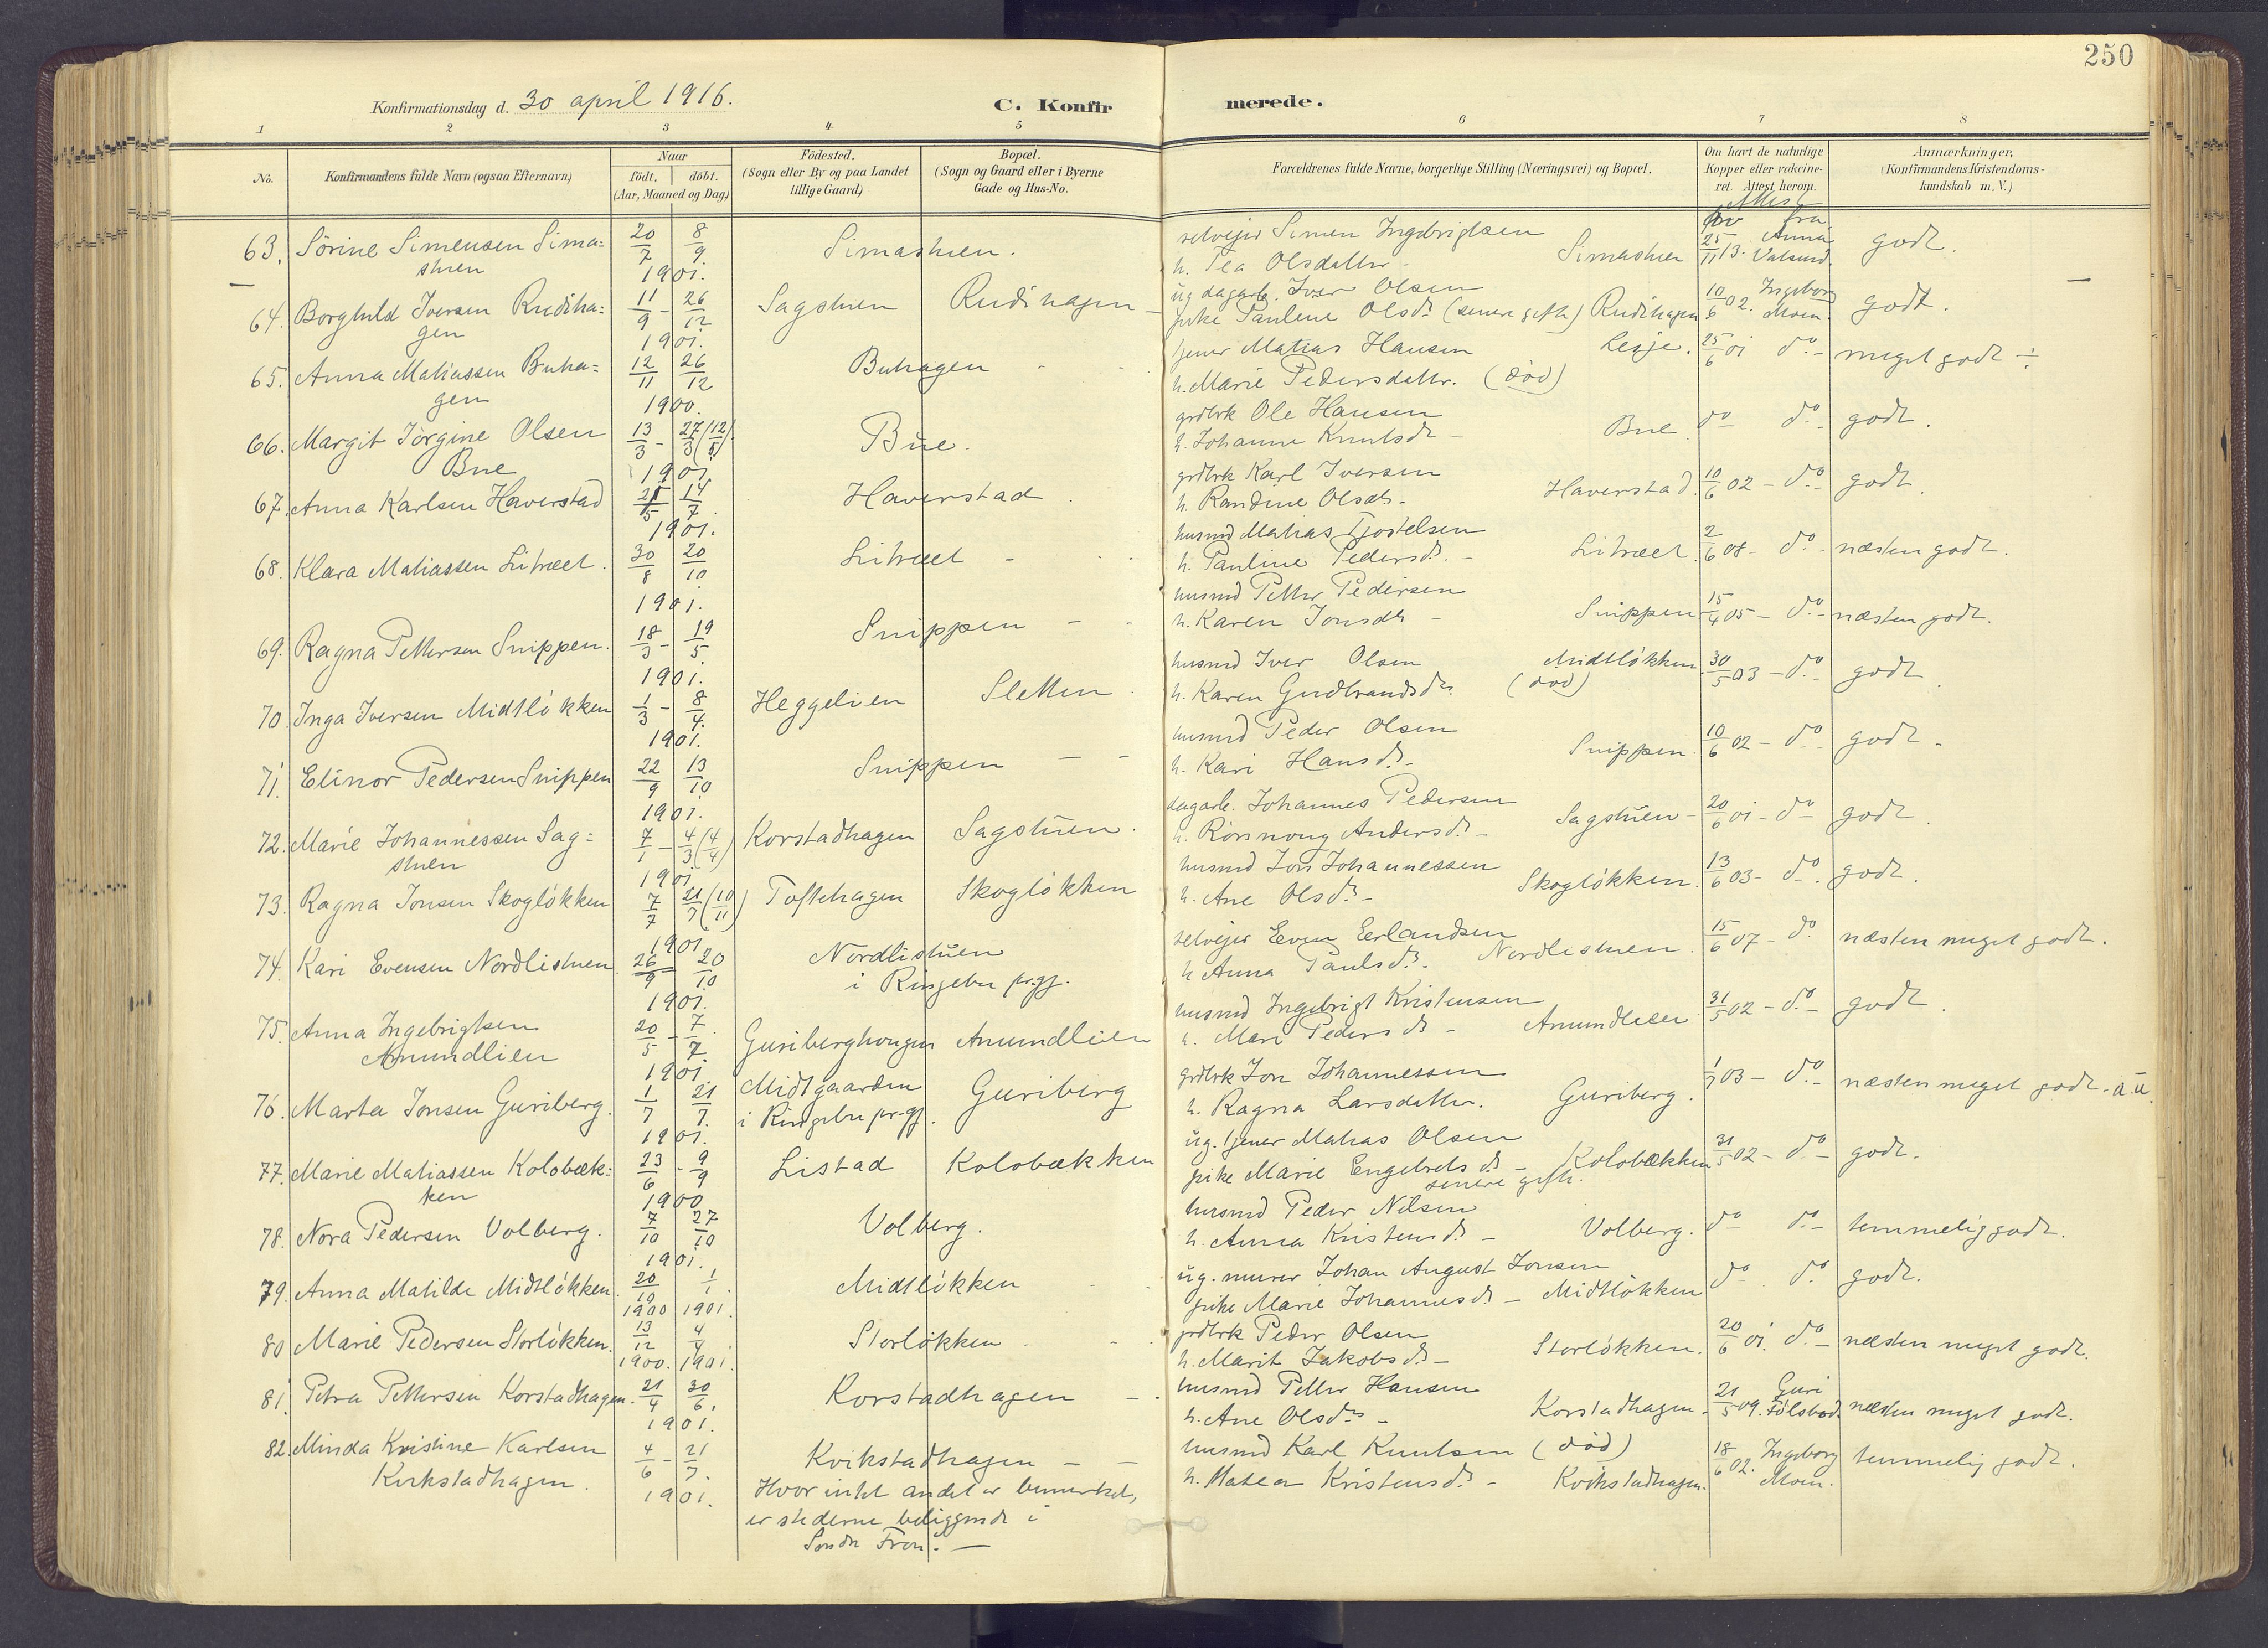 250
Konfirmationsdag d. 30 april 1916.
C. Konfir merede.
1 2 3 4 5 6 7 8
No.
Konfirmandens fulde Navn (ogsaa Efternavn)
Naar
födt. döbt.
(Aar, Maaned og Dag)
Födested.
(Sogn eller By og paa Landet
tillige Gaard)
Bopæl.
(Sogn og Gaard eller i Byerne
Gade og Hus-No.
Forældrenes fulde Navne, borgerlige Stilling (Næringsvei) og Bopæl.
Om havt de naturlige
Kopper eller vakcine-
ret. Attest herom.
Anmærkninger,
(Konfirmandens Kristendoms-
kundskab m. V.)
Attest
fra
63. Sörine Simensen Sima= 20/7 8/9 Simastuen. selvejer Simen Ingebrigtsen 25/11 13. Anna godt.
stuen 1901. h. Pea Olsdatter - Simastuen
64. Borghild Iversen Rudiha= 11/9 - 26/12 Sagstuen Rudihagen ug dagarb. Iver Olsen 10/6 02. Ingeborg Moen. godt.
gen 1901. pike Pauline Olsdr (senere gift) Rudihagen
65. Anna Matiassen Buha= 12/11 26/12 Buhagen tjener Matias Hansen Lesje. 25/6 01 do - meget godt ÷
gen 1900. h. Marie Pedersdattr. (död)
66. Margit Jörgine Olsen 13/3 - 27/3 (12/5) Bue. grdbrk Ole Hansen do do - godt.
Bue 1901 h. Johanne Knutsdr - Bue
67. Anna Karlsen Haverstad 21/5 14/7 Haverstad. grdbrk Karl Iversen 10/6 02 - do godt.
1901. h. Randine Olsdr - Haverstad.
68. Klara Matiassen Litræet. 30/8 20/10 Litræet - husmd Matias Tjostelsen 2/6 08 - do - næsten godt.
1901. h. Pauline Pedersdr. - Litræet.
69. Ragna Pettersen Snippen. 18/3 - 19/5 Snippen - - husmd Petter Pedersen 15/4 05 - do - næsten godt.
1901. h. Karen Jonsdr - Snippen
70. Inga Iversen Midtlökken 1/3 - 8/4. Heggelien Sletten. husmd Iver Olsen Midtlökken. 30/5 03 - do - godt.
1901. h. Karen Gudbrandsdr. (död)
71. Elinor Pedersen Snippen 22/9 13/10 Snippen - - husmd Peder Olsen 10/6 02 - do - godt.
1901. h. Kari Hansdr. - Snippen.
72. Marie Johannessen Sag= 7/1 - 4/3 (4/4) Korstadhagen Sagstuen. dagarb. Johannes Pedersen 20/6 01 - do - godt.
stuen 1901 h. Rönnoug Andersdr - Sagstuen -
73. Ragna Jonsen Skoglökken 7/7 21/7 (10/11) Toftehagen Skoglökken husmd Jon Johannessen 13/6 03 - do - godt.
1901 h. Ane Olsdr - Skoglökken.
74. Kari Evensen Nordlistuen 26/9 20/10 Nordlistuen selvejer Even Erlandsen 15/6 07 - do næsten meget godt.
1901. i Ringebu prgj. h Anna Paulsdr. Nordlistuen.
75. Anna Ingebrigtsen 20/5 - 7/7. Guriberghougen Amundlien husmd Ingebrigt Kristensen 31/5 02 - do - godt.
Amundlien 1901. h. Mari Pedersdr - Amundlien
76. Marta Jonsen Guriberg. 1/7 21/7. Midtgaarden Guriberg grdbrk Jon Johannessen 1/7 03 - do - næsten meget godt. - a.u.
1901. i Ringebu prgj. h. Ragna Larsdatter. Guriberg.
77. Marie Matiassen Kolobæk= 23/6 - 9/9 Listad Kolobækken ug. tjener Matias Olsen 31/5 02 - do - godt.
ken 1900 pike Marie Engebretsdr - Kolobækken
senere gift.
78. Nora Pedersen Volberg. 7/10 27/10 Volberg. husmd Peder Nilsen do do - temmelig godt.
1901. h. Anna Kristensdr - Volberg.
79. Anna Matilde Midtlökken. 20/10 1/1 Midtlökken ug. murer Johan August Jonsen do do godt.
1900 1901. pike Marie Johannesdr - Midtlökken
80 Marie Pedersen Storlökken. 13/12 4/4 Storlökken grdbrk Peder Olsen 20/6 01. do - næsten meget godt.
1900. 1901. h. Marit Jakobsdr - Storlökken.
81. Petra Pettersen Korstadhagen. 21/4 30/6. Korstadhagen - husmd Petter Hansen 21/5 09. Guri næsten meget godt.
1901. h. Ane Olsdr - Korstadhagen
82. Minda Kristine Karlsen 4/6 - 21/7. Kvikstadhagen - - husmd Karl Knutsen (död) 18/6 02. Ingeborg Moen. temmelig godt.
Kvikstadhagen. 1901. h. Matea Kristensdr - Kvikstadhagen.
Hvor intet andet er bemerket,
er stederne beliggende i
Söndre Fron. -